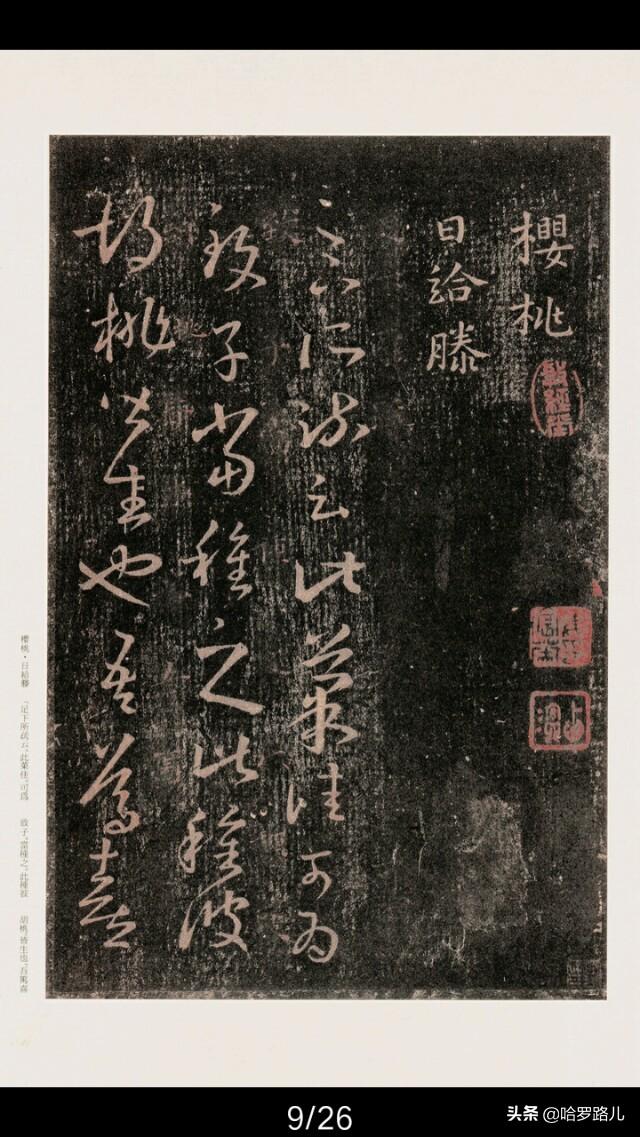 櫻桃
日給滕
足下所疏云此菓佳可為
致子當種之此種彼
胡桃皆生也吾篤喜
櫻桃·日給滕 「足下所疏云，此菓佳，可爲 致子，當種之。此種彼 胡桃，皆生也。吾篤喜
9/26
头条 @哈罗路儿